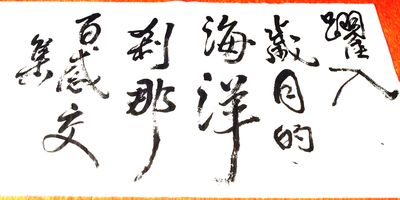 躍入
歲月的
海洋
刹那
百感交
集